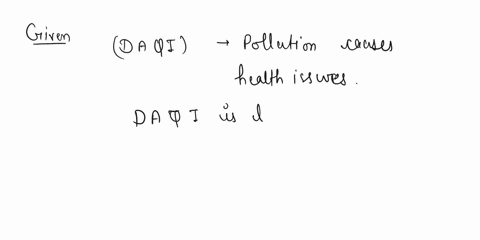 Given
(DAQI) → Pollution causes
health issues.
DAQI is